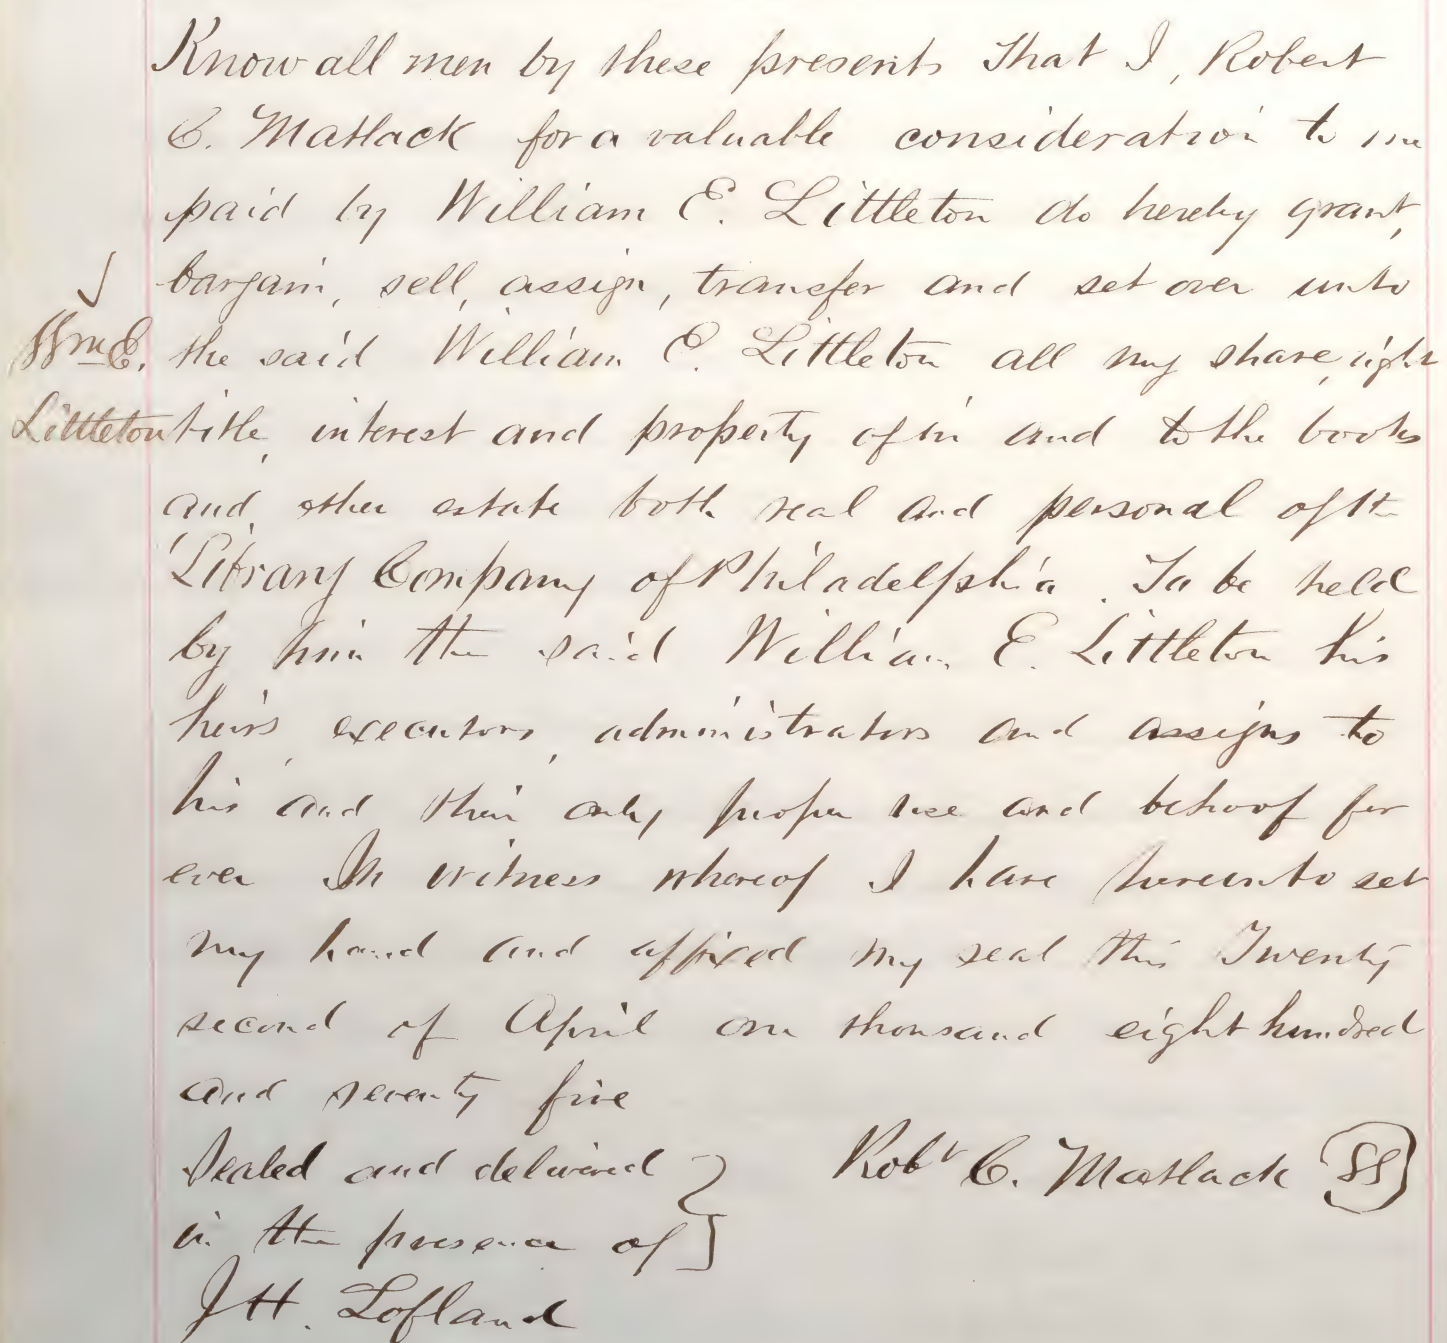 Know all men by these presents that I, Robert
C. Matlack for a valuable consideration to me
paid by William E. Littleton do hereby grant,
bargain, sell, assign, transfer and set over unto
✓
Wm E.
Littleton
the said William E. Littleton all my share, right
title, interest and property of in and to the books
and other estate both real and personal of the
Library Company of Philadelphia. To be held
by him the said William E. Littleton his
heirs, executors, administrators and assigns to
his and their only proper use and behoof for
ever In witness whereof I have hereunto set
my hand and affixed my seal this Twenty
second of April one thousand eight hundred
and seventy five
Sealed and delivered
in the presence of
Robt C. Matlack SS
J H. Lofland